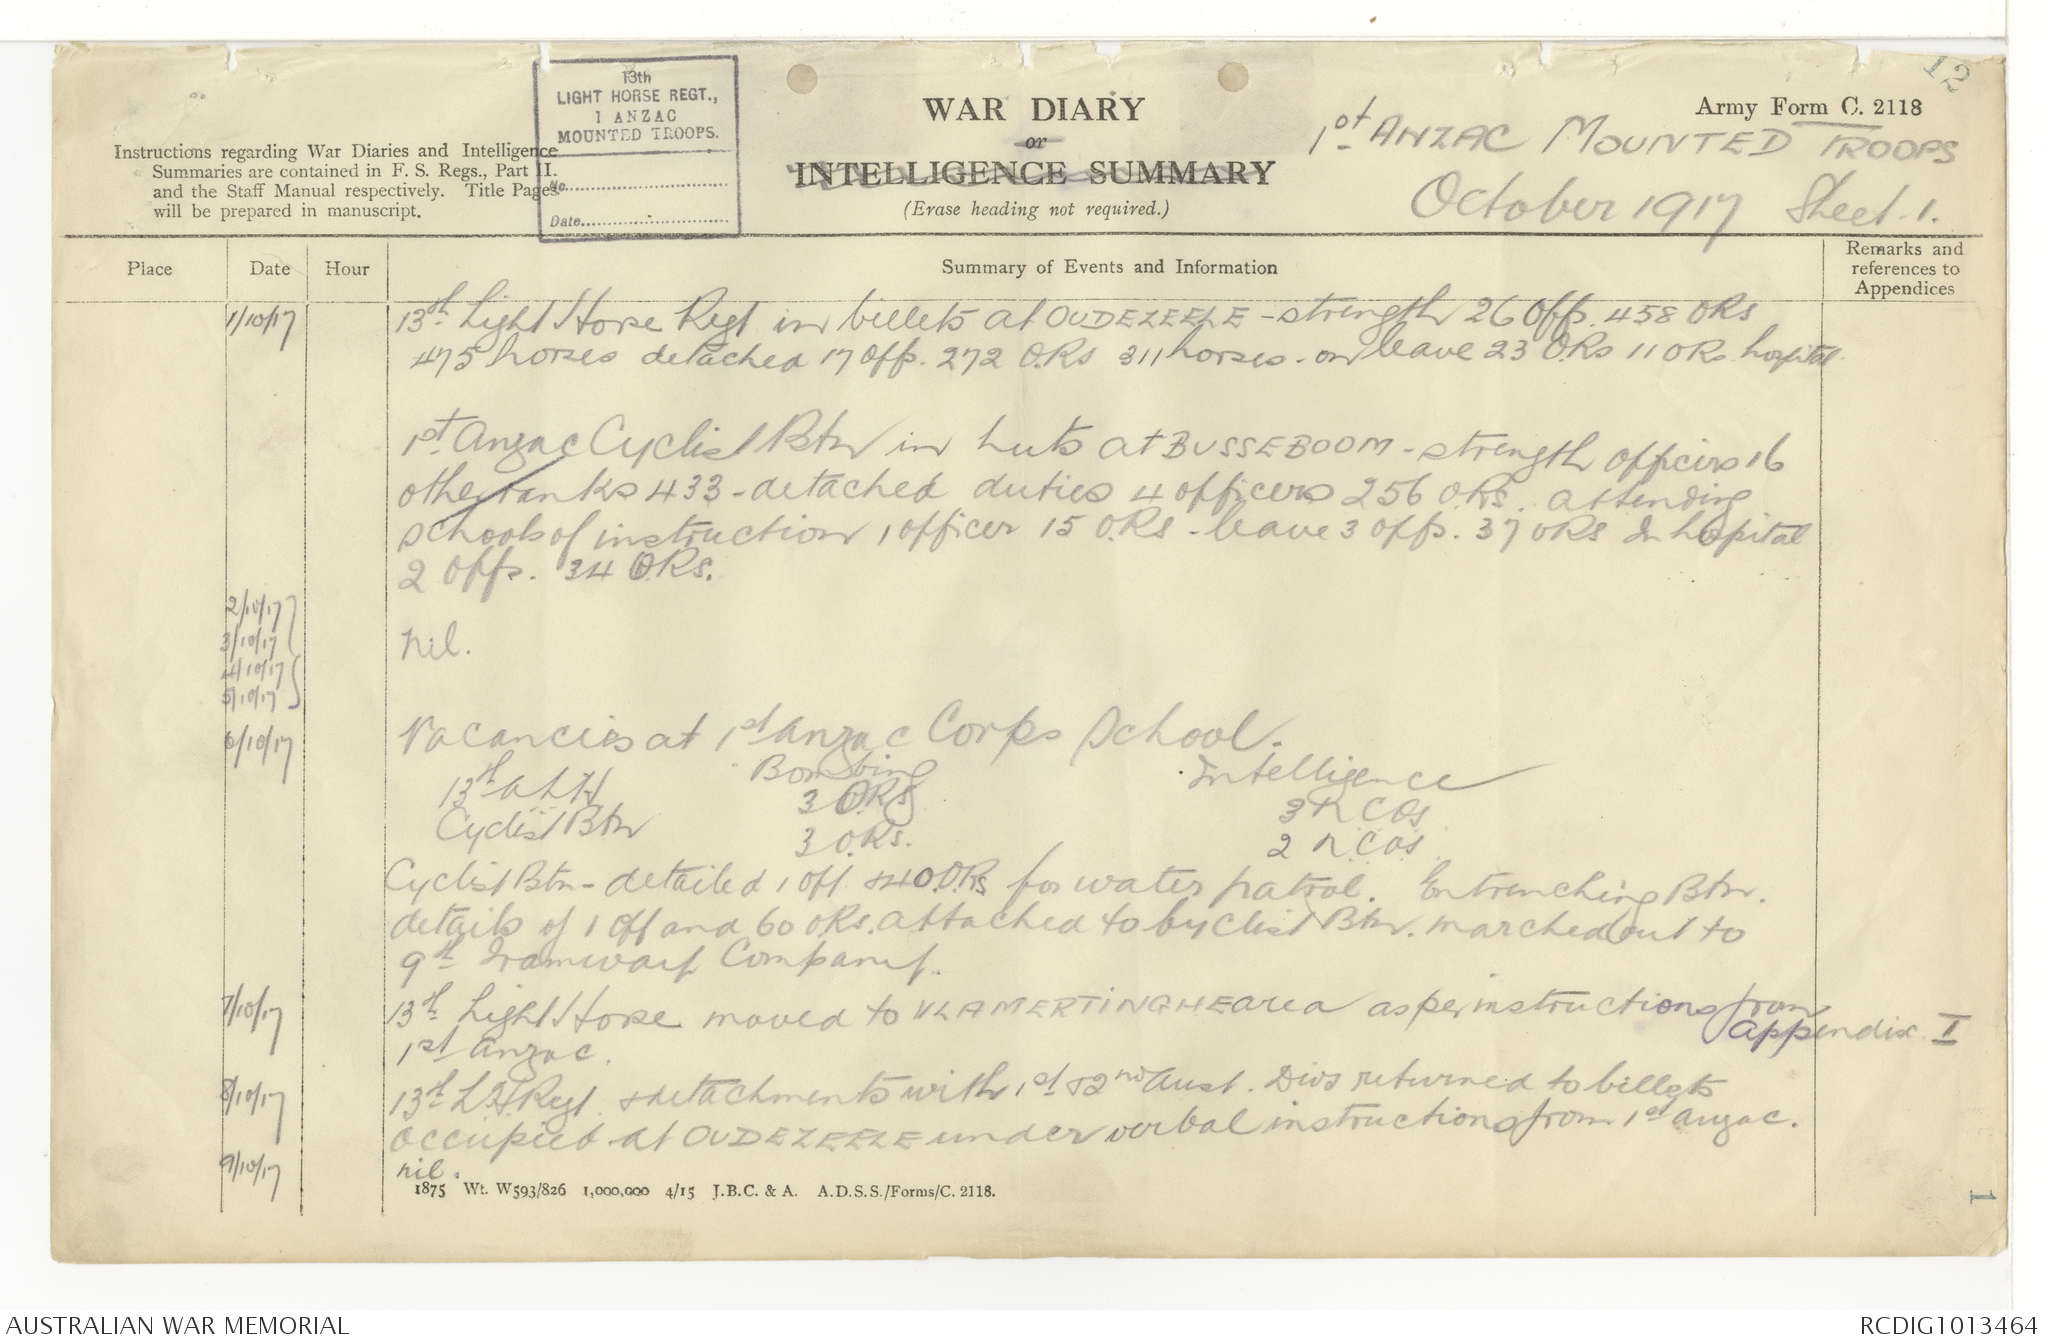 12
13th
LIGHT HORSE REGT.,
1 ANZAC
MOUNTED TROOPS.
No.
Date
Instructions regarding War Diaries and Intelligence
Summaries are contained in F. S. Regs., Part II.
and the Staff Manual respectively. Title Pages
will be prepared in manuscript.
WAR DIARY
or
INTELLIGENCE SUMMARY
(Erase heading not required.)
Army Form C. 2118
1st ANZAC MOUNTED TROOPS
October 1917 Sheet 1.
Place Date Hour Summary of Events and Information Remarks and references to Appendices
1/10/17 13th Light Horse Regt in billets at OUDEZEELE - strength 26 Offs. 458 ORs
475 horses detached 17 Offs. 272 ORs 311 horses - on leave 23 ORs 11 ORs hospital.
1st Anzac Cyclist Btn in huts at BUSSEBOOM - strength officers 16
other ranks 433 - detached duties 4 officers 256 ORs. attending
schools of instruction 1 officer 15 ORs - leave 3 offs. 37 ORs In hospital
2 Offs. 34 ORs.
2/10/17
3/10/17 nil.
4/10/17
5/10/17
6/10/17 Vacancies at 1st Anzac Corps School.
Bombing Intelligence
13th ALH 3 ORs 3 NCOs
Cyclist Btn 3 ORs. 2 N.C.Os.
Cyclist Btn - detailed 1 off. & 40 O.Rs for water patrol. Entrenching Btn.
details of 1 Off and 60 ORs. attached to Cyclist Btn. marched out to
9th Tramway Company.
7/10/17 13th Light Horse moved to VLAMERTINGHE area as per instructions from
1st Anzac. Appendix I
8/10/17 13th L.H. Regt. & detachments with 1st & 2nd Aust. Divs returned to billets
occupied at OUDEZEELE under verbal instructions from 1st Anzac.
9/10/17 nil.
1875 Wt. W593/826 1,000,000 4/15 J.B.C. & A. A.D.S.S./Forms/C. 2118.
1
AUSTRALIAN WAR MEMORIAL
RCDIG1013464